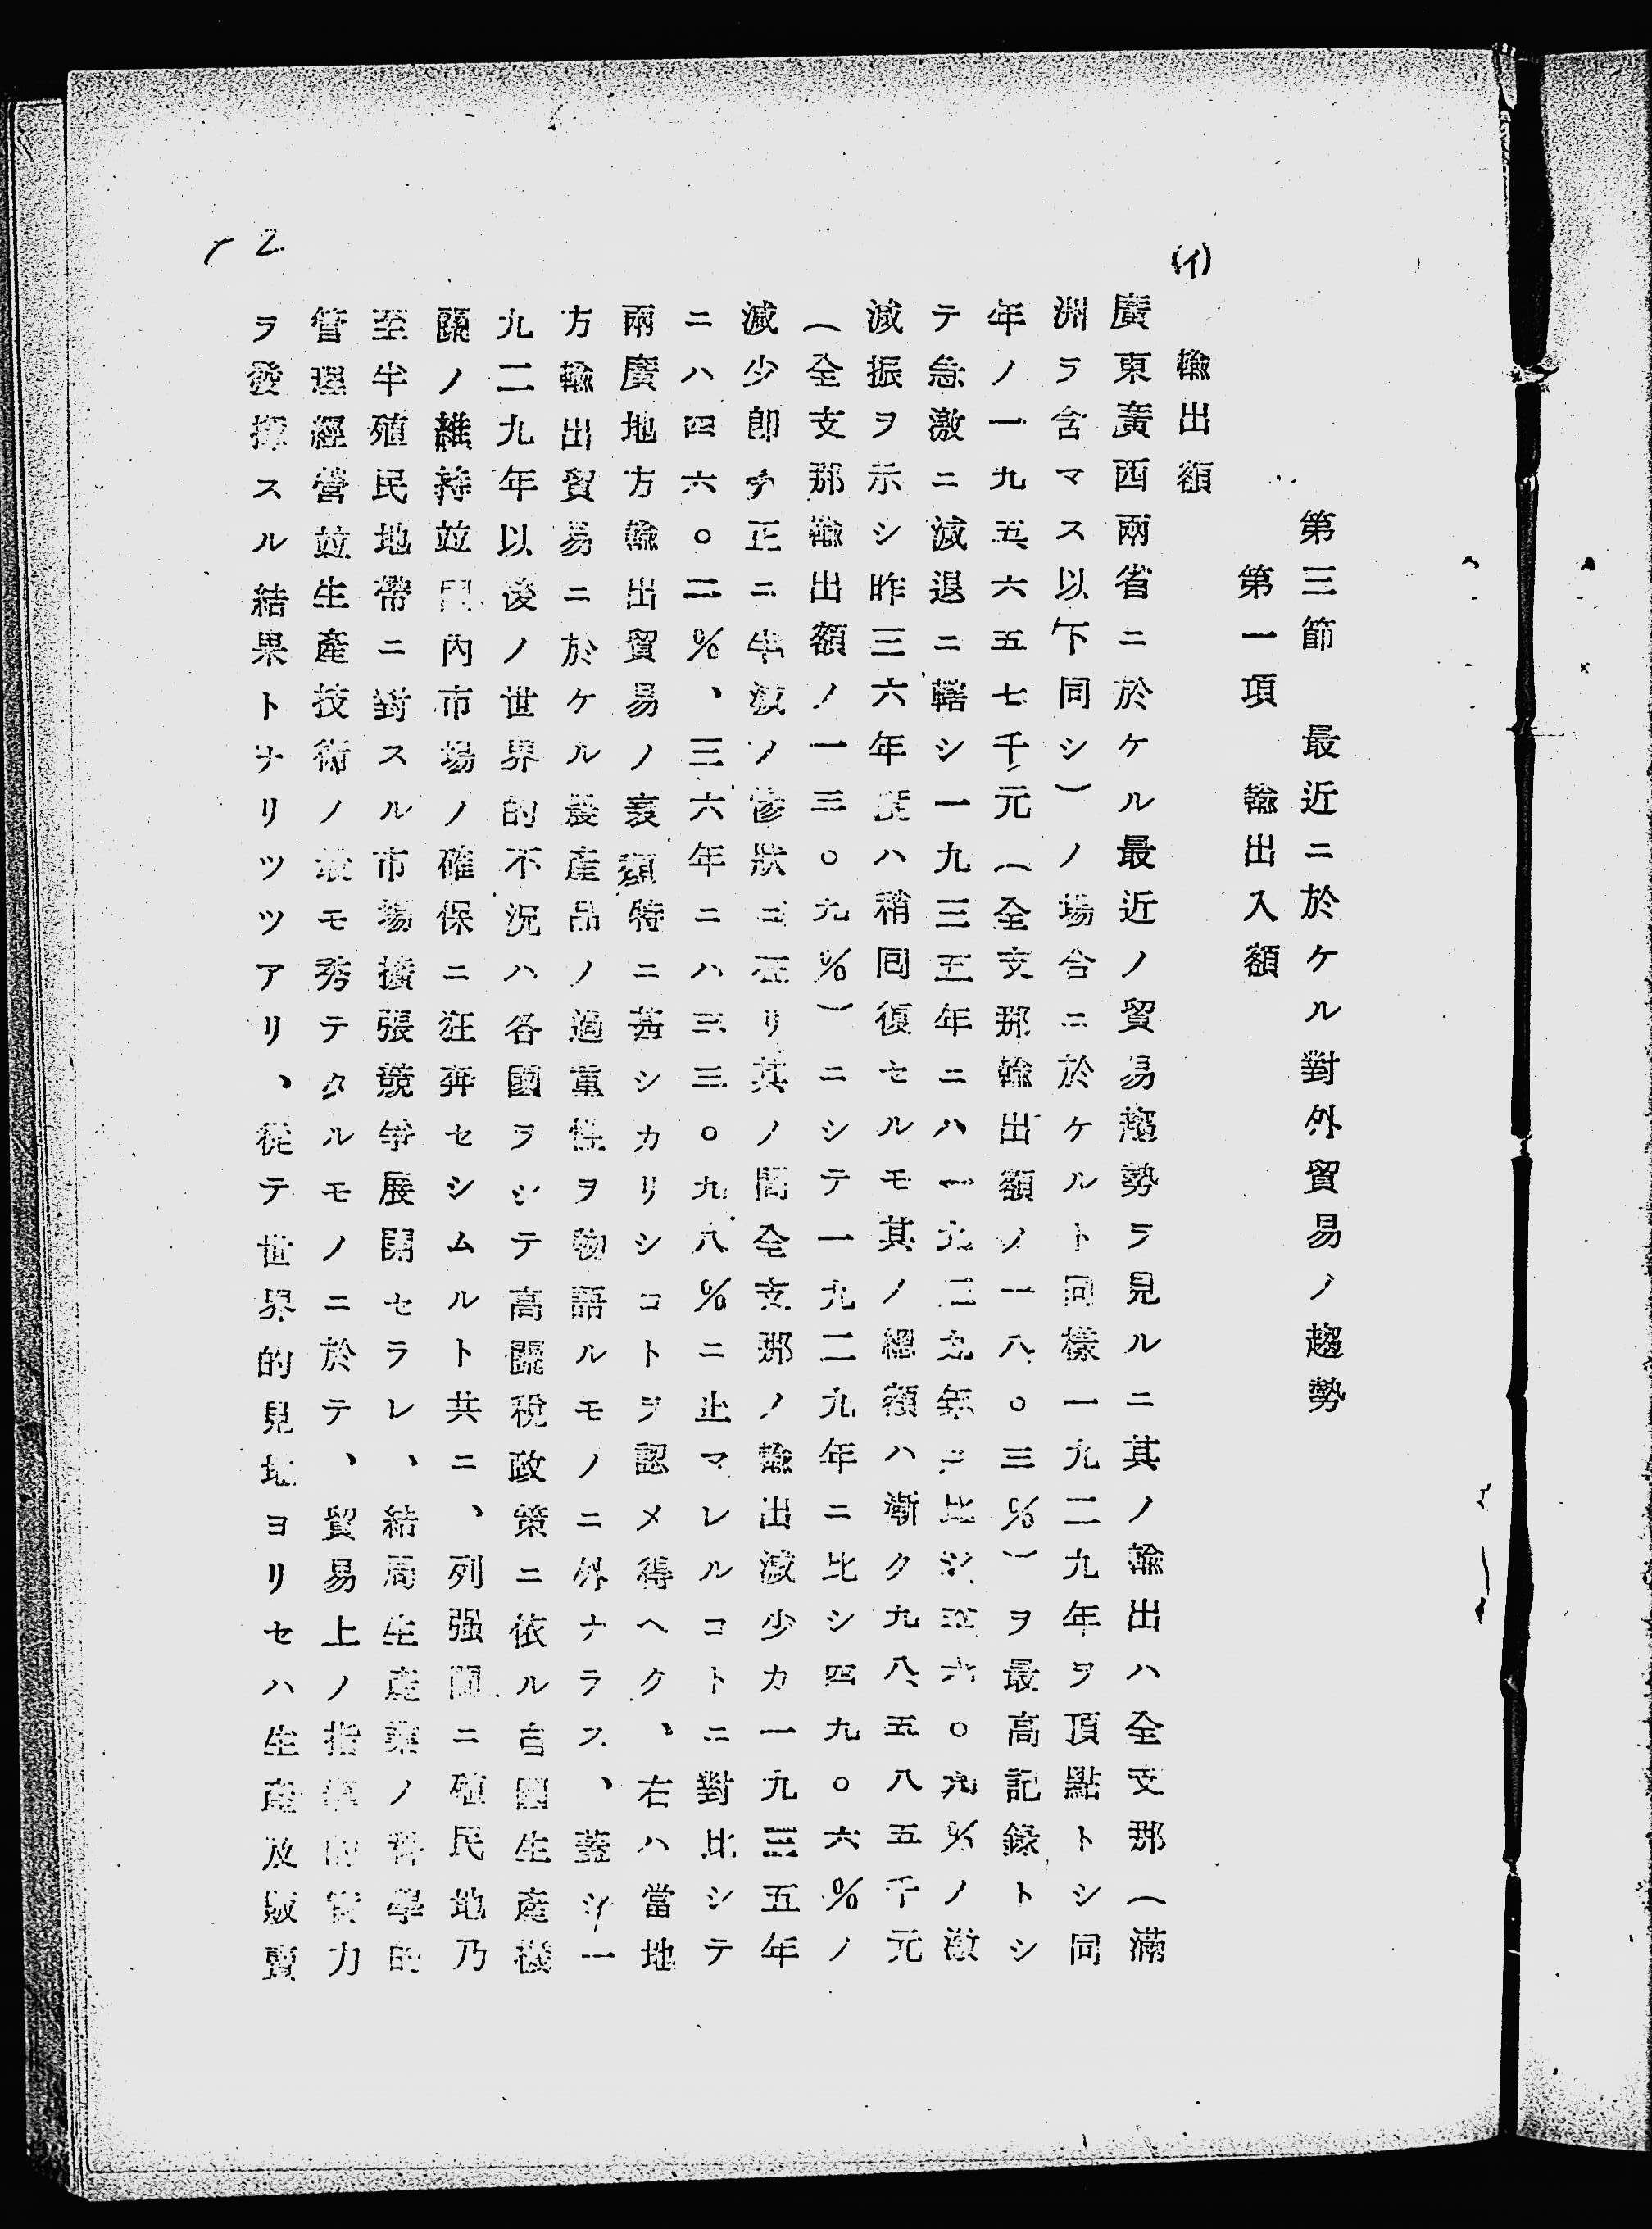 第三節　最近ニ於ケル對外貿易ノ趨勢
第一項　輸出入額
(イ)　輸出額
廣東廣西兩省ニ於ケル最近ノ貿易趨勢ヲ見ルニ其ノ輸出ハ全支那（滿
洲ヲ含マス以下同シ）ノ場合ニ於ケルト同樣一九二九年ヲ頂點トシ同
年ノ一九五六五七千元（全支那輸出額ノ一八。三％）ヲ最高記錄トシ
テ急激ニ減退ニ轉シ一九三五年ニハ一九二九年ニ比シ六。九％ノ激
減振ヲ示シ昨三六年度ハ稍囘復セルモ其ノ總額ハ漸ク九八五八五千元
（全支那輸出額ノ一三。九％）ニシテ一九二九年ニ比シ四九。六％ノ
減少卽チ正ニ半減ノ慘狀ニ在リ其ノ間全支那ノ輸出減少カ一九三五年
ニハ四六。二％、三六年ニハ三三。九八％ニ止マレルコトニ對比シテ
兩廣地方輸出貿易ノ衰頽特ニ甚シカリシコトヲ認メ得ヘク、右ハ當地
方輸出貿易ニ於ケル農產品ノ過重性ヲ物語ルモノニ外ナラス、蓋シ一
九二九年以後ノ世界的不況ハ各國ヲシテ高關稅政策ニ依ル自國生產機
關ノ維持竝國內市場ノ確保ニ狂奔セシムルト共ニ、列强間ニ殖民地乃
至半殖民地帶ニ對スル市場擴張競爭展開セラレ、結局生產業ノ科學的
管理經營竝生產技術ノ最モ秀テタルモノニ於テ、貿易上ノ指導的實力
ヲ發揮スル結果トナリツツアリ、從テ世界的見地ヨリセハ生產及販賣
2